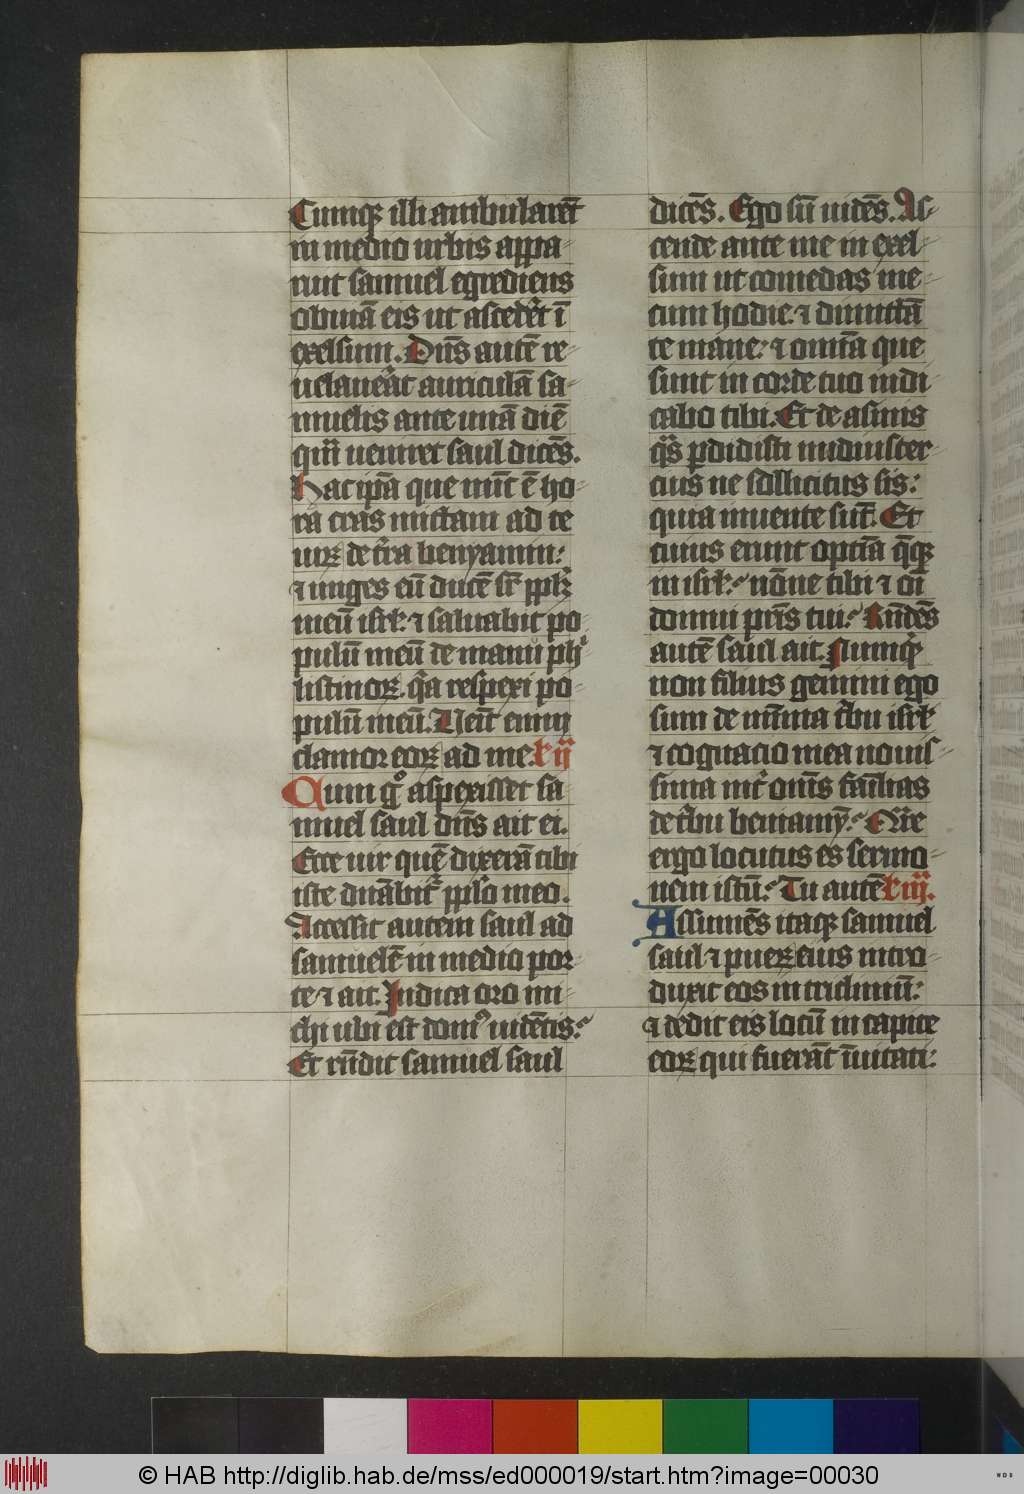 Cumq; illi ambularēt
in medio urbis appa
ruit samuel egrediens
obuiā eis ut ascēder̄t ī
exelsum. Dn̄s autē re
uelauer̄at auriculā sa
muelis ante unā diē
qm̄ ueniret saul dicēs.
Hac ip̄a que nūc ē ho
ra cras mictam ad te
uiꝝ de tr̄ra benyamin:
⁊ unges eū ducē sr̄ pplꝫ
meū isrl̄: ⁊ saluabit po
pulū meū de manu phi
listinoꝝ. qr̄a respexi po
pulū meū. Ueīt enim
clamor eoꝝ ad me. xij
Cum qͦ aspexisset sa
muel saul dn̄s ait ei.
Ecce uir quē dixerā tibi
iste dn̄abit͛ pplo meo.
Accessit autem saul ad
samuelē in medio por
te ⁊ ait. Indica oro mi
chi ubi est domꝰ uidētis:
Et rn̄dit samuel saul
dicēs. Ego sū uidēs. As
cende ante me in exel
sum ut comedas me
cum hodie: ⁊ dimictā
te mane: ⁊ omīa que
sunt in corde tuo indi
cabo tibi. Et de asinis
qͣs ꝑdidisti nudiuster
cius ne sollicitus sis:
quia inuente sūt. Et
cuius erunt optīa q̄q;
in isrl̄: nōne tibi ⁊ oī
domui pr̄is tui: Rn̄dēs
autē saul ait. Numqͥd
non filius gemini ego
sum de mīma tͥbu isrl̄
⁊ cognacio mea nouis
sima int͛ om̄s familias
de tͥbu beniamȳ: Qr̄e
ergo locutus es sermo
nem istū: Tu autē xiij.
Assumēs itaq; samuel
saul ⁊ pueꝝ eius intro
duxit eos in tricliniū:
⁊ dedit eis locū in capite
eoꝝ qui fuerāt īuitati:
© HAB http://diglib.hab.de/mss/ed000019/start.htm?image=00030